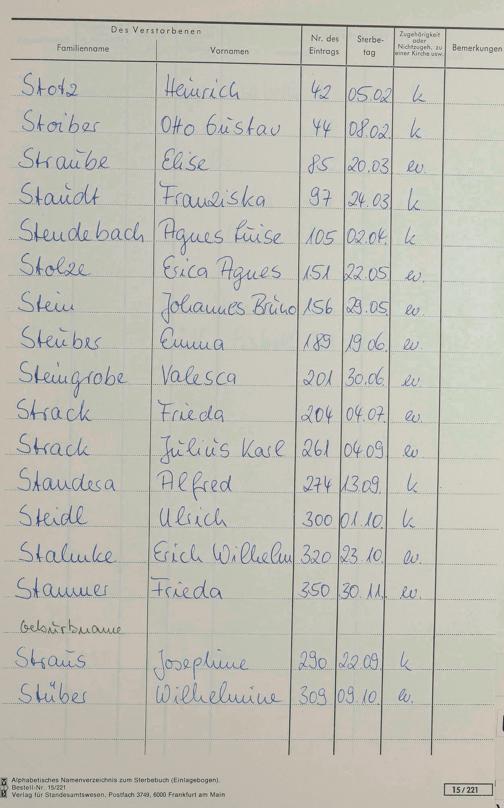 Des Verstorbenen
Familienname Vornamen Nr. des Eintrags Sterbe-tag Zugehörigkeit oder Nichtzugeh. zu einer Kirche usw. Bemerkungen
Stotz Heinrich 42 05.02 k
Stoiber Otto Gustav 44 08.02. k
Straube Elise 85 20.03 ev.
Staudt Franziska 97 24.03 k
Steudebach Agnes Luise 105 02.04. k
Stolze Erica Agnes 151 22.05 ev.
Stein Johannes Bruno 156 29.05 ev.
Steuber Emma 189 19.06. ev.
Steingrobe Valesca 201 30.06. ev.
Strack Frieda 204 04.07. ev.
Strack Julius Karl 261 04.09 ev.
Standesa Alfred 274 13.09. k
Steidl Ulrich 300 01.10. k
Stahnke Erich Wilhelm 320 23.10. ev.
Stammer Frieda 350 30.11. ev.
Geburtsname
Straus Josephine 290 22.09. k
Stüber Wilhelmine 309 09.10. ev.
Alphabetisches Namenverzeichnis zum Sterbebuch (Einlagebogen).
Bestell-Nr. 15/221
Verlag für Standesamtswesen, Postfach 3749, 6000 Frankfurt am Main
15/221